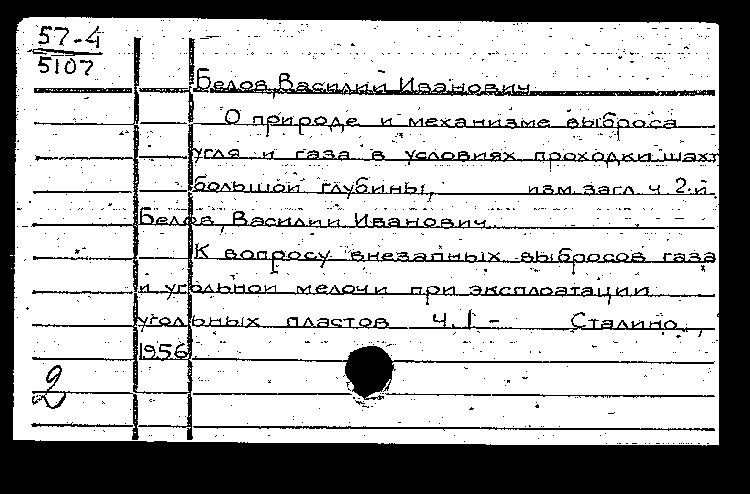 57-4
5107
Белов, Василий Иванович
О природе и механизме выброса
угля и газа в условиях проходки шахт
большой глубины, изм. загл. ч 2-й.
Белов, Василий Иванович.
К вопросу внезапных выбросов газа
и угольной мелочи при эксплоатации
угольных пластов Ч. I - Сталино,
1956
2